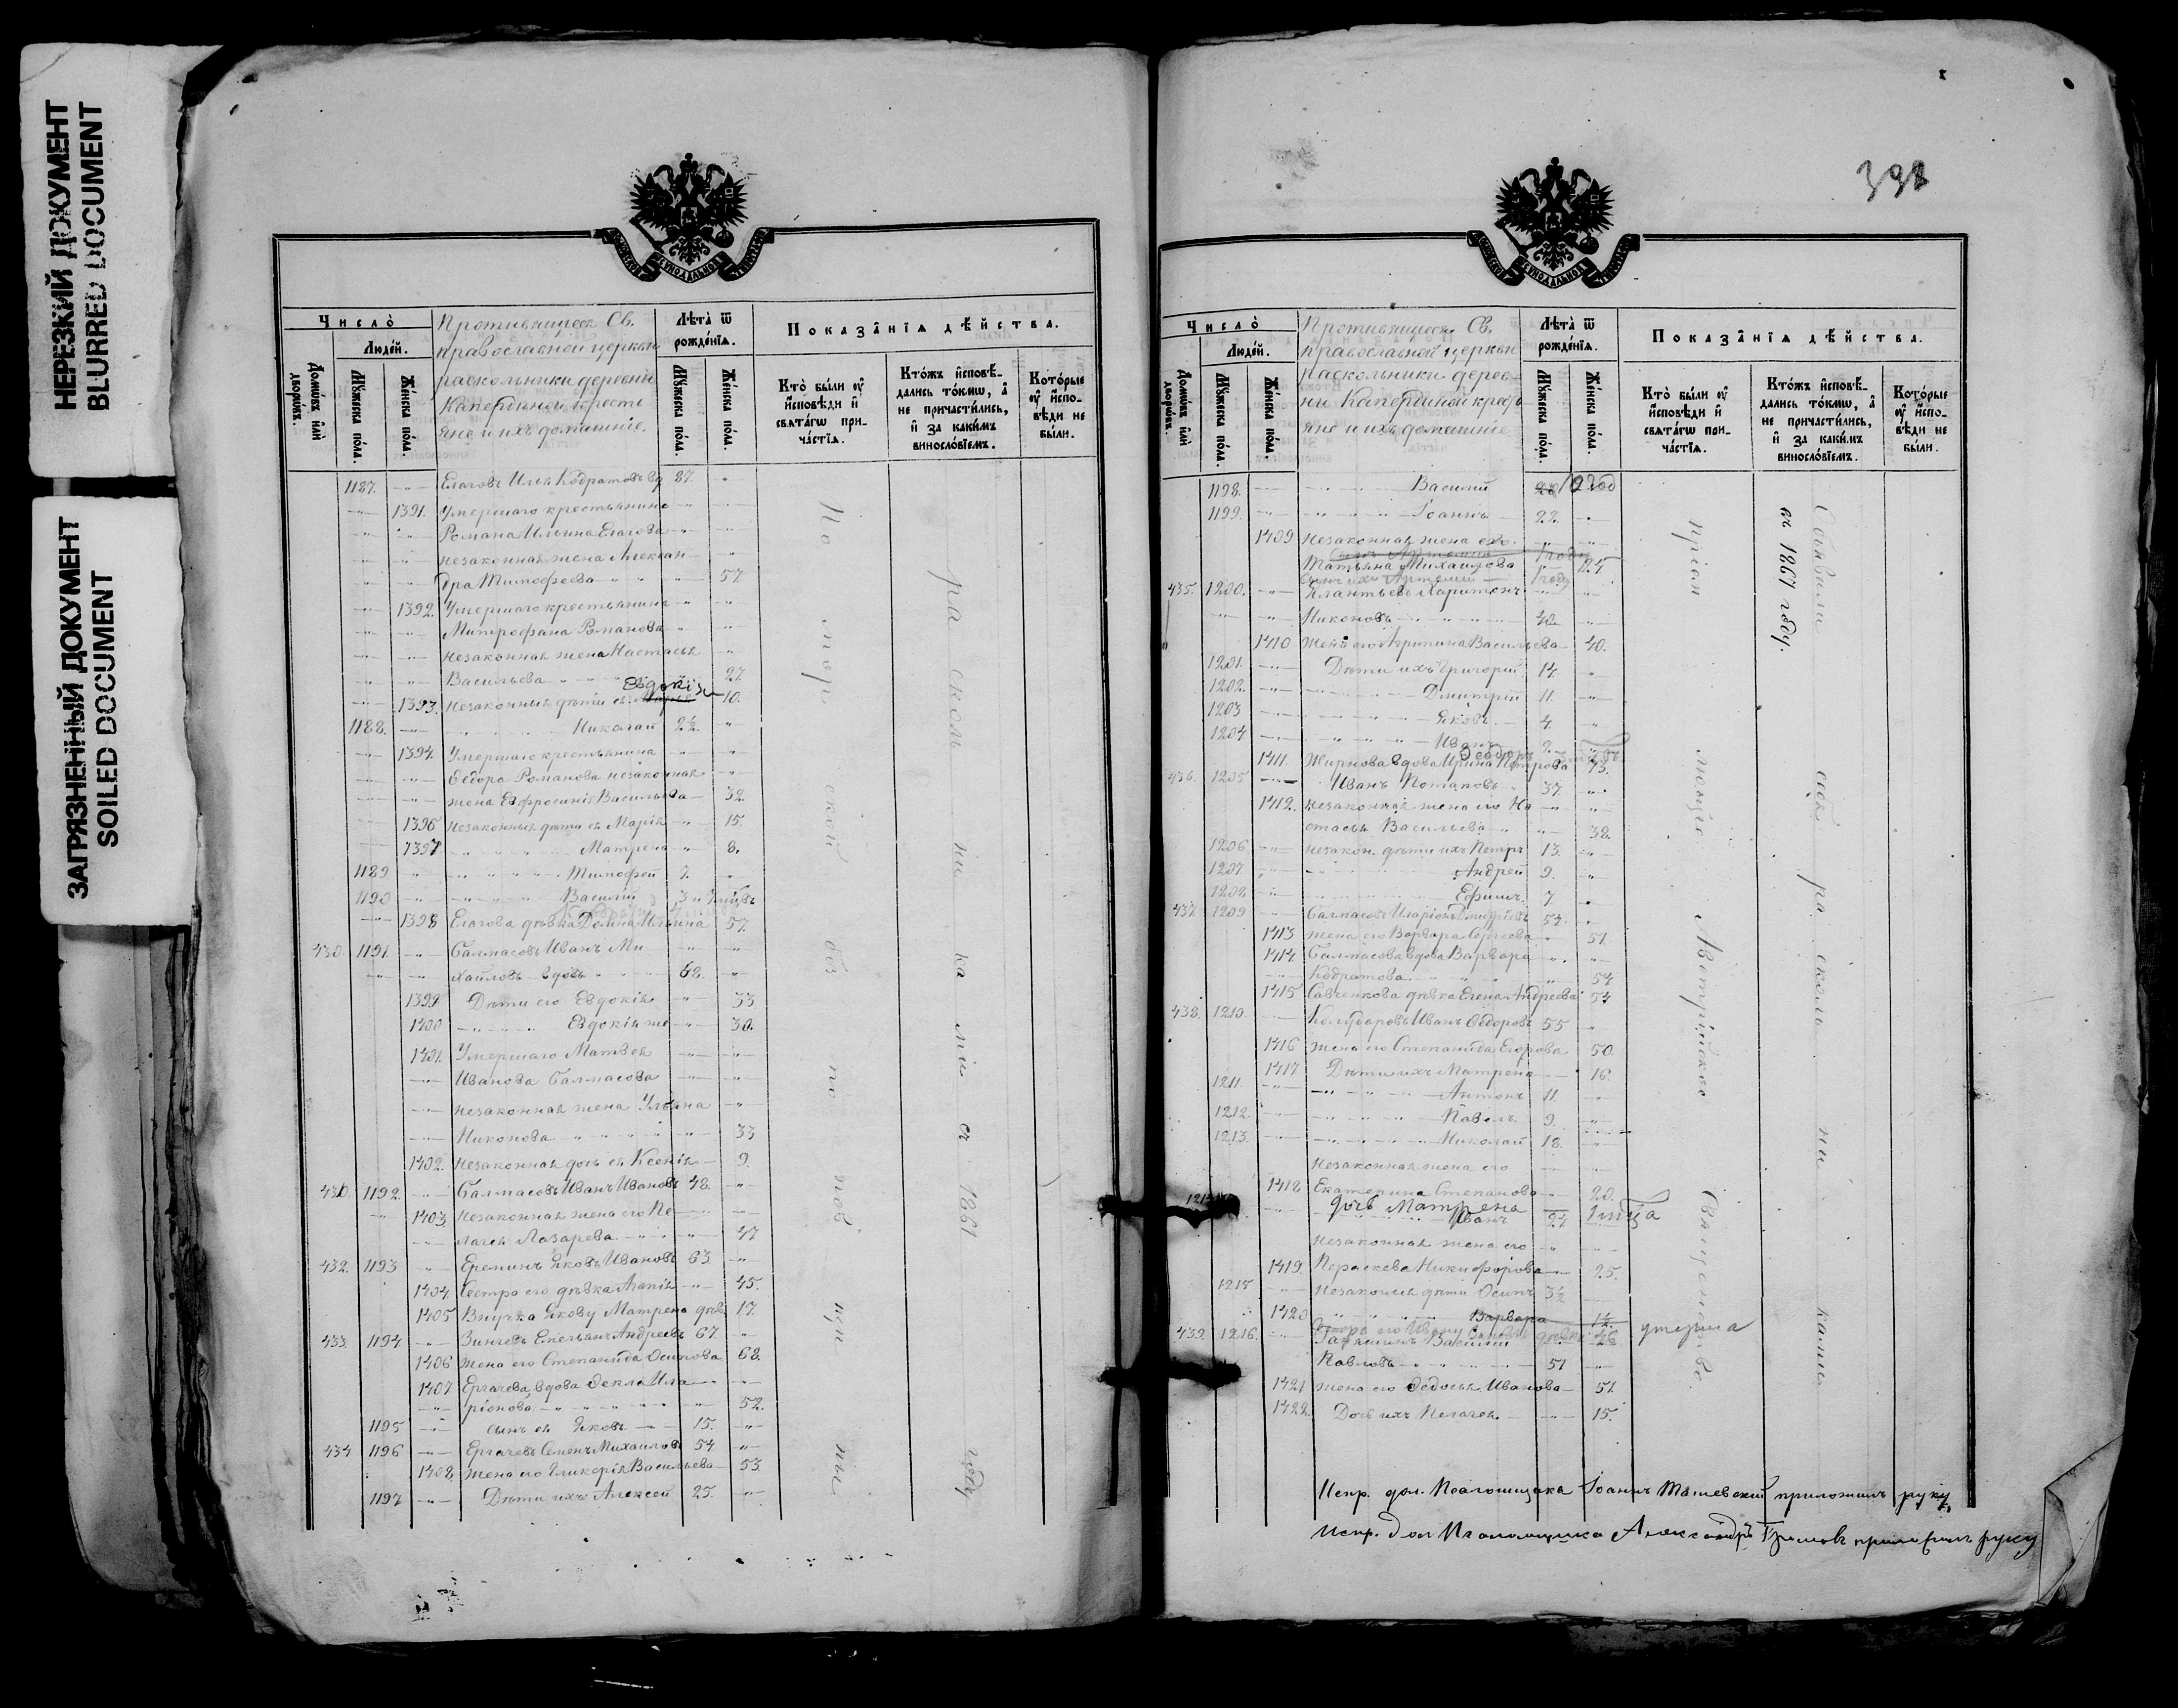 НЕРЕЗКИЙ ДОКУМЕНТ
BLURRED DOCUMENT
ЗАГРЯЗНЕННЫЙ ДОКУМЕНТ
SOILED DOCUMENT
Число̀
Людей.
Домѡвъ или дворѡвъ.
Мꙋжеска полꙋ.
Женска полꙋ.
Противящиеся Св.
православной церкви
раскольники деревни
Капердиной кресть
яне и ихъ домашніе.
Лѣта̀ ѿ рожденїѧ.
Мꙋжеска полꙋ.
Женска пола.
Показанїѧ дѣйства.
Кто̀ были ᲂу҆ исповѣди и свѧтагѡ причастїѧ.
Ктожъ исповѣдались токмѡ, а не причастились, и за какимъ винословїемъ.
Которые ᲂу҆ исповѣди не были.
1187. Елаговъ Илья Кодратовъ вд 87.
1391. Умершаго крестьянина
Романа Ильина Елагова
незаконная жена Алексан
дра Тимофеева 57
1392. Умершаго крестьянина
Митрофана Романова
незаконная жена Настасья
Васильева 27
Евдокія
1393. незаконныя дѣти ея 10.
1188. Николай 2½
1394. Умершаго крестьянина
Федора Романова незаконная
жена Евфросинія Васильева 32.
1396 незаконныя дѣти ея Марія 15.
1397 Матрена 8.
1189 Тимофей 2.
1190 Василій 3
1398 Елагова дѣвка Домна Ильина 57.
430. 1191. Салмасовъ Иванъ Ми
хайловъ вдовъ 68.
1399 Дѣти его Евдокія 33
1400 Евдокія же 30.
1401. Умершаго Матвея
Иванова Салмасова
незаконная жена Ульяна
Никонова 33
1402. незаконная дочь ея Ксенія 9.
430. 1192. Салмасовъ Иванъ Ивановъ 48.
1403 незаконная жена его Пе
лагея Лазарева 47
432. 1193 Ереминъ Яковъ Ивановъ 63.
1404 Сестра его дѣвка Агапія 45.
1405 Внучка Якову Матрена дѣв. 17.
433. 1194. Емельянъ Андреевъ 67.
1406 жена его Степанида Осипова 68.
1407 Ергачева вдова Фекла Ила
ріонова 52.
1195 сынъ ея Яковъ 15.
434 1196 Ергачевъ Семенъ Михаиловъ 54
1408. жена его Гликерія Васильева 53
1197 Дѣти ихъ Алексей 25.
По морской безпоповщи
раскольниками съ 1861 году
398
Число̀
Людей.
Домѡвъ или дворѡвъ.
Мꙋжеска полꙋ.
Женска полꙋ.
Противящиеся Св.
православной церкви
раскольники дерев-
ни Капердиной кресть
яне и ихъ домашніе
Лѣта̀ ѿ рожденїѧ.
Мꙋжеска полꙋ.
Женска пола.
Показанїѧ дѣйства.
Кто̀ были ᲂу҆ исповѣди и свѧтагѡ причастїѧ.
Ктожъ исповѣдались токмѡ, а не причастились, и за какимъ винословїемъ.
Которые ᲂу҆ исповѣди не были.
1198. Василій
1199. Іоаннъ 22.
1409 незаконная жена его
Татьяна Михайлова 25
435. 1200. Харитонъ
Никоновъ 42
1410 жена его Агрипина Васильева 40.
1201. Дѣти ихъ Григорій 14
1202. Дмитрій 11.
1203 Яковъ 4.
1204. Иванъ 2.
Феодоръ
1411. Жирнова вдова Ирина Петрова 73.
436. 1205 Иванъ Потаповъ 37
1412. незаконная жена его На
стасья Васильева 38.
1206. незакон. дѣти ихъ Петръ 13.
1207 Андрей 9.
1208 Ефимъ 7
437 1209 Салмасовъ Иларіонъ 54.
1413 жена его Варвара Сергеева 51.
1414 Салмасова вдова Варвара
Кодратова 54
1415 Савченкова дѣвка Елена Андреева 54
438. 1210. Иванъ Федоровъ 55
1416 жена его Степанида Егорова 50.
1417 Дѣти ихъ Матрена 16.
1211. Антонъ 11.
1212. Павелъ 9.
1213. Николай 18.
незаконная жена его
1418 Екатерина Степанова 20.
дочь Матрена
Иванъ 24
незаконная жена его
1419. Параскева Никифорова 25.
1215 незаконыя дѣти Осипъ 3½
1420 Варвара 1½
439. 1216. Василій
Павловъ 51
1421 жена его Федосья Иванова 51
1422. Дочь ихъ Пелагея 15.
умерла
пріемлющіе Австрійское Священство.
Записались раскольниками
съ 1867 году.
Испр. дол. Псаломщика Іоаннъ приложилъ руку,
Испр. дол Псаломщика Александръ Громовъ приложилъ руку